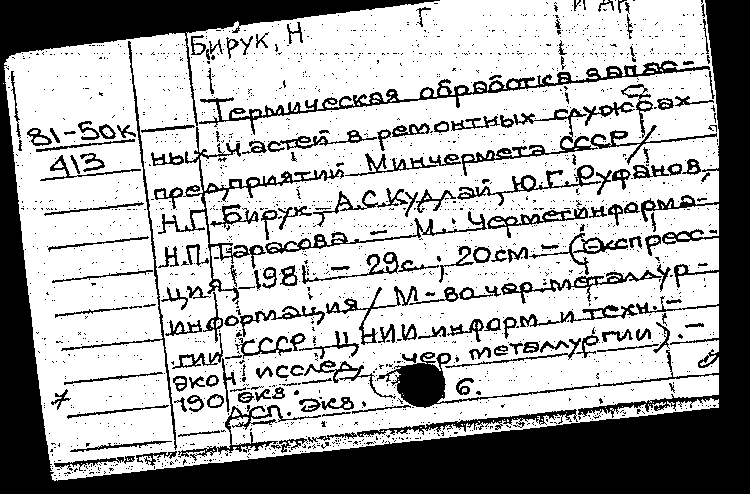 Бирук, Н Г и др
81-50к
413
Термическая обработка запас-
ных частей в ремонтных службах
предприятий Минчермета СССР /
Н.Г. Бирук, А.С. Кудлай, Ю.Г. Руфанов,
Н.П. Тарасова. – М.: Черметинформа-
ция, 1981. – 29с.; 20см. – (Экспресс-
информация / М-во чер. металлур-
гии СССР, ЦНИИ информ. и техн. –
экон исслед. чер. металлургии). –
190 экз.
6.